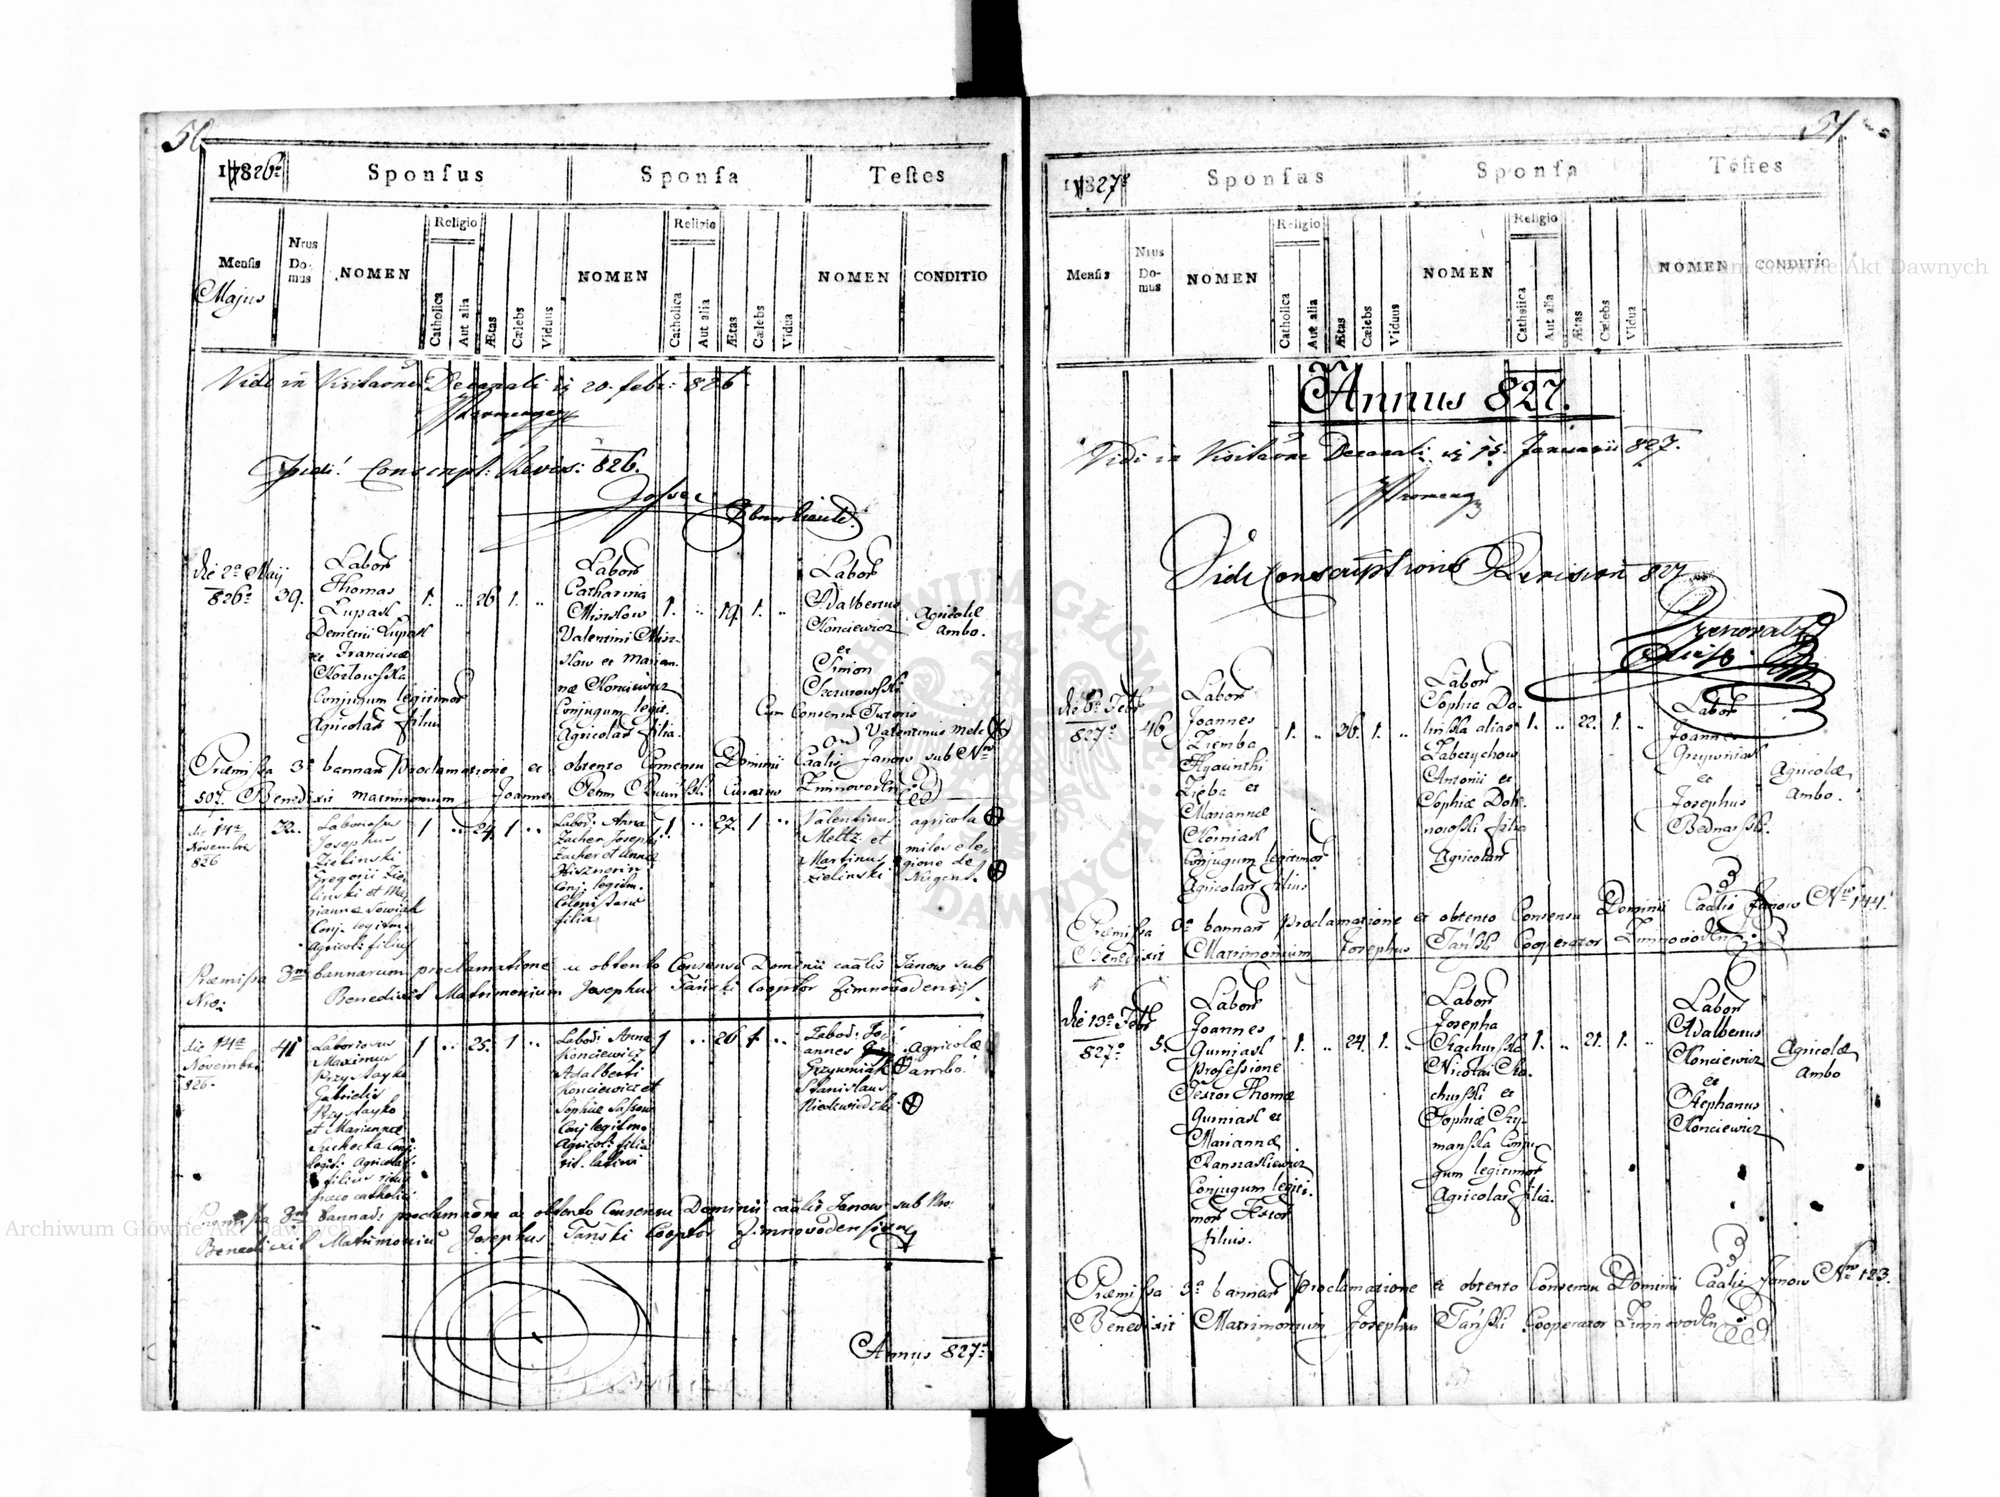 50
1826
Sponsus
Sponsa
Testes
Mensis
Majus
Nrus Do-mus
NOMEN
Religio
Catholica
Aut alia
Ætas
Cælebs
Viduus
NOMEN
Religio
Catholica
Aut alia
Ætas
Cælebs
Vidua
NOMEN
CONDITIO
Vidi in Visitaōne Decanali 20. febr: 826
Vidi! Conscript: Revis: 826.
die 2a Maij
826
39.
Labor
Thomas
Lupak
Demetrii Lupak
et Francisca
Kozłowska
Conjugum legitimor
Agricolar filius
1. .. 26 1. ..
Labor
Catharina
Valentini
et Marian-
næ Konciewicz
Conjugum legit.
Agricolar filia.
1. .. 19. 1. ..
Labor
Adalbertus
Konciewicz
et
Simon
Szczurowski
Agricolæ
ambo.
Cum Consensu Tutoris
Valentinus
Præmissa 3a bannar Proclamatione et obtento Consensu Dominii Caalis Janow sub Nro
507. Benedixit matrimonium Joannes Curatus Zimnovodensis
die 14a
Novembris
826
32.
Laboriosus
Josephus
Zielinski
Gregorii Zie-
linski et Ma-
rianna Nowiak
Conj. legitim.
Agricol: filius
1 .. 24 1 ..
Labor: Anna
Zacher Josephi
Zacher et Annæ
Conj. legitim.
Colonistarum
filia
1 .. 27. 1 ..
Valentinus
Meltz et
Martinus
Zielinski
agricola
miles e le-
gione de
Nugent.
Præmissa 3m bannarum proclamatione ac obtento Consensu Dominii caalis Janow sub
Nro: Benedixit Matrimonium Josephus Tański Cooptor Zimnovodensis
die 14a
Novembris
826.
41
Laboriosus
Maximus
Przystayko
Gabrielis
Przystayko
et Mariannæ
Suchecka Conj.
legit: Agricolar
filius ritus
græco catholici
1 .. 25. 1 ..
Labor: Anna
Konciewicz
Adalberti
Konciewicz et
Sophiæ
Conj legitim.
Agricol: filia
rit. latini
1 .. 26 1 ..
Labor: Jo-
annes
Grzywniak
Stanislaus
Niedzwiedzki
Agricolæ
ambo.
Præmissa 3m bannar: proclamaōne ac obtento Consensu Dominii caalis Janow sub Nro.
Benedixit Matrimonium Josephus Tański Cooptor Zimnovodensis
Annus 827
51
1827
Sponsus
Sponsa
Testes
Mensis
Nrus Do-mus
NOMEN
Religio
Catholica
Aut alia
Ætas
Cælebs
Viduus
NOMEN
Religio
Catholica
Aut alia
Ætas
Cælebs
Vidua
NOMEN
CONDITIO
Annus 827.
Vidi in Visitaōne Decanali 15. Januarii 827.
Vidi Conscriptionis Revision 827
die 6a Febr
827
46
Labor
Joannes
Ziemba
Hyacinthi
Zięba et
Mariannæ
Korniak
Conjugum legitimor
Agricolar filius
1. .. 36. 1. ..
Labor
Sophia Do-
linska alias
Zaberychow
Antonii et
Sophiæ
filia
Agricolar
1. .. 22. 1. ..
Labor
Joannes
Grzywniak
et
Josephus
Bednarski.
Agricolæ
Ambo.
Præmissa 3a bannar Proclamatione et obtento Consensu Dominii Caalis Janow Nro 144.
Benedixit Matrimonium Josephus Tański Cooperator Zimnovoden
die 13a Febr
827
5.
Labor
Joannes
Guiniak
professione
Textor Thomæ
Guiniak et
Mariannæ
Conjugum legiti-
mor Textor
filius.
1. .. 24. 1. ..
Labor
Josepha
Nicolai
et
Sophiæ Szy-
manska Conju-
gum legitimor
Agricolar filia.
1. .. 21. 1. ..
Labor
Adalbertus
Konciewicz
et
Stephanus
Konciewicz
Agricolæ
Ambo
Præmissa 3a bannar Proclamatione et obtento Consensu Dominii Caalis Janow Nro 123.
Benedixit Matrimonium Josephus Tański Cooperator Zimnovoden
ARCHIWUM GŁÓWNE AKT DAWNYCH
Archiwum Główne Akt Dawnych
Archiwum Główne Akt Dawnych